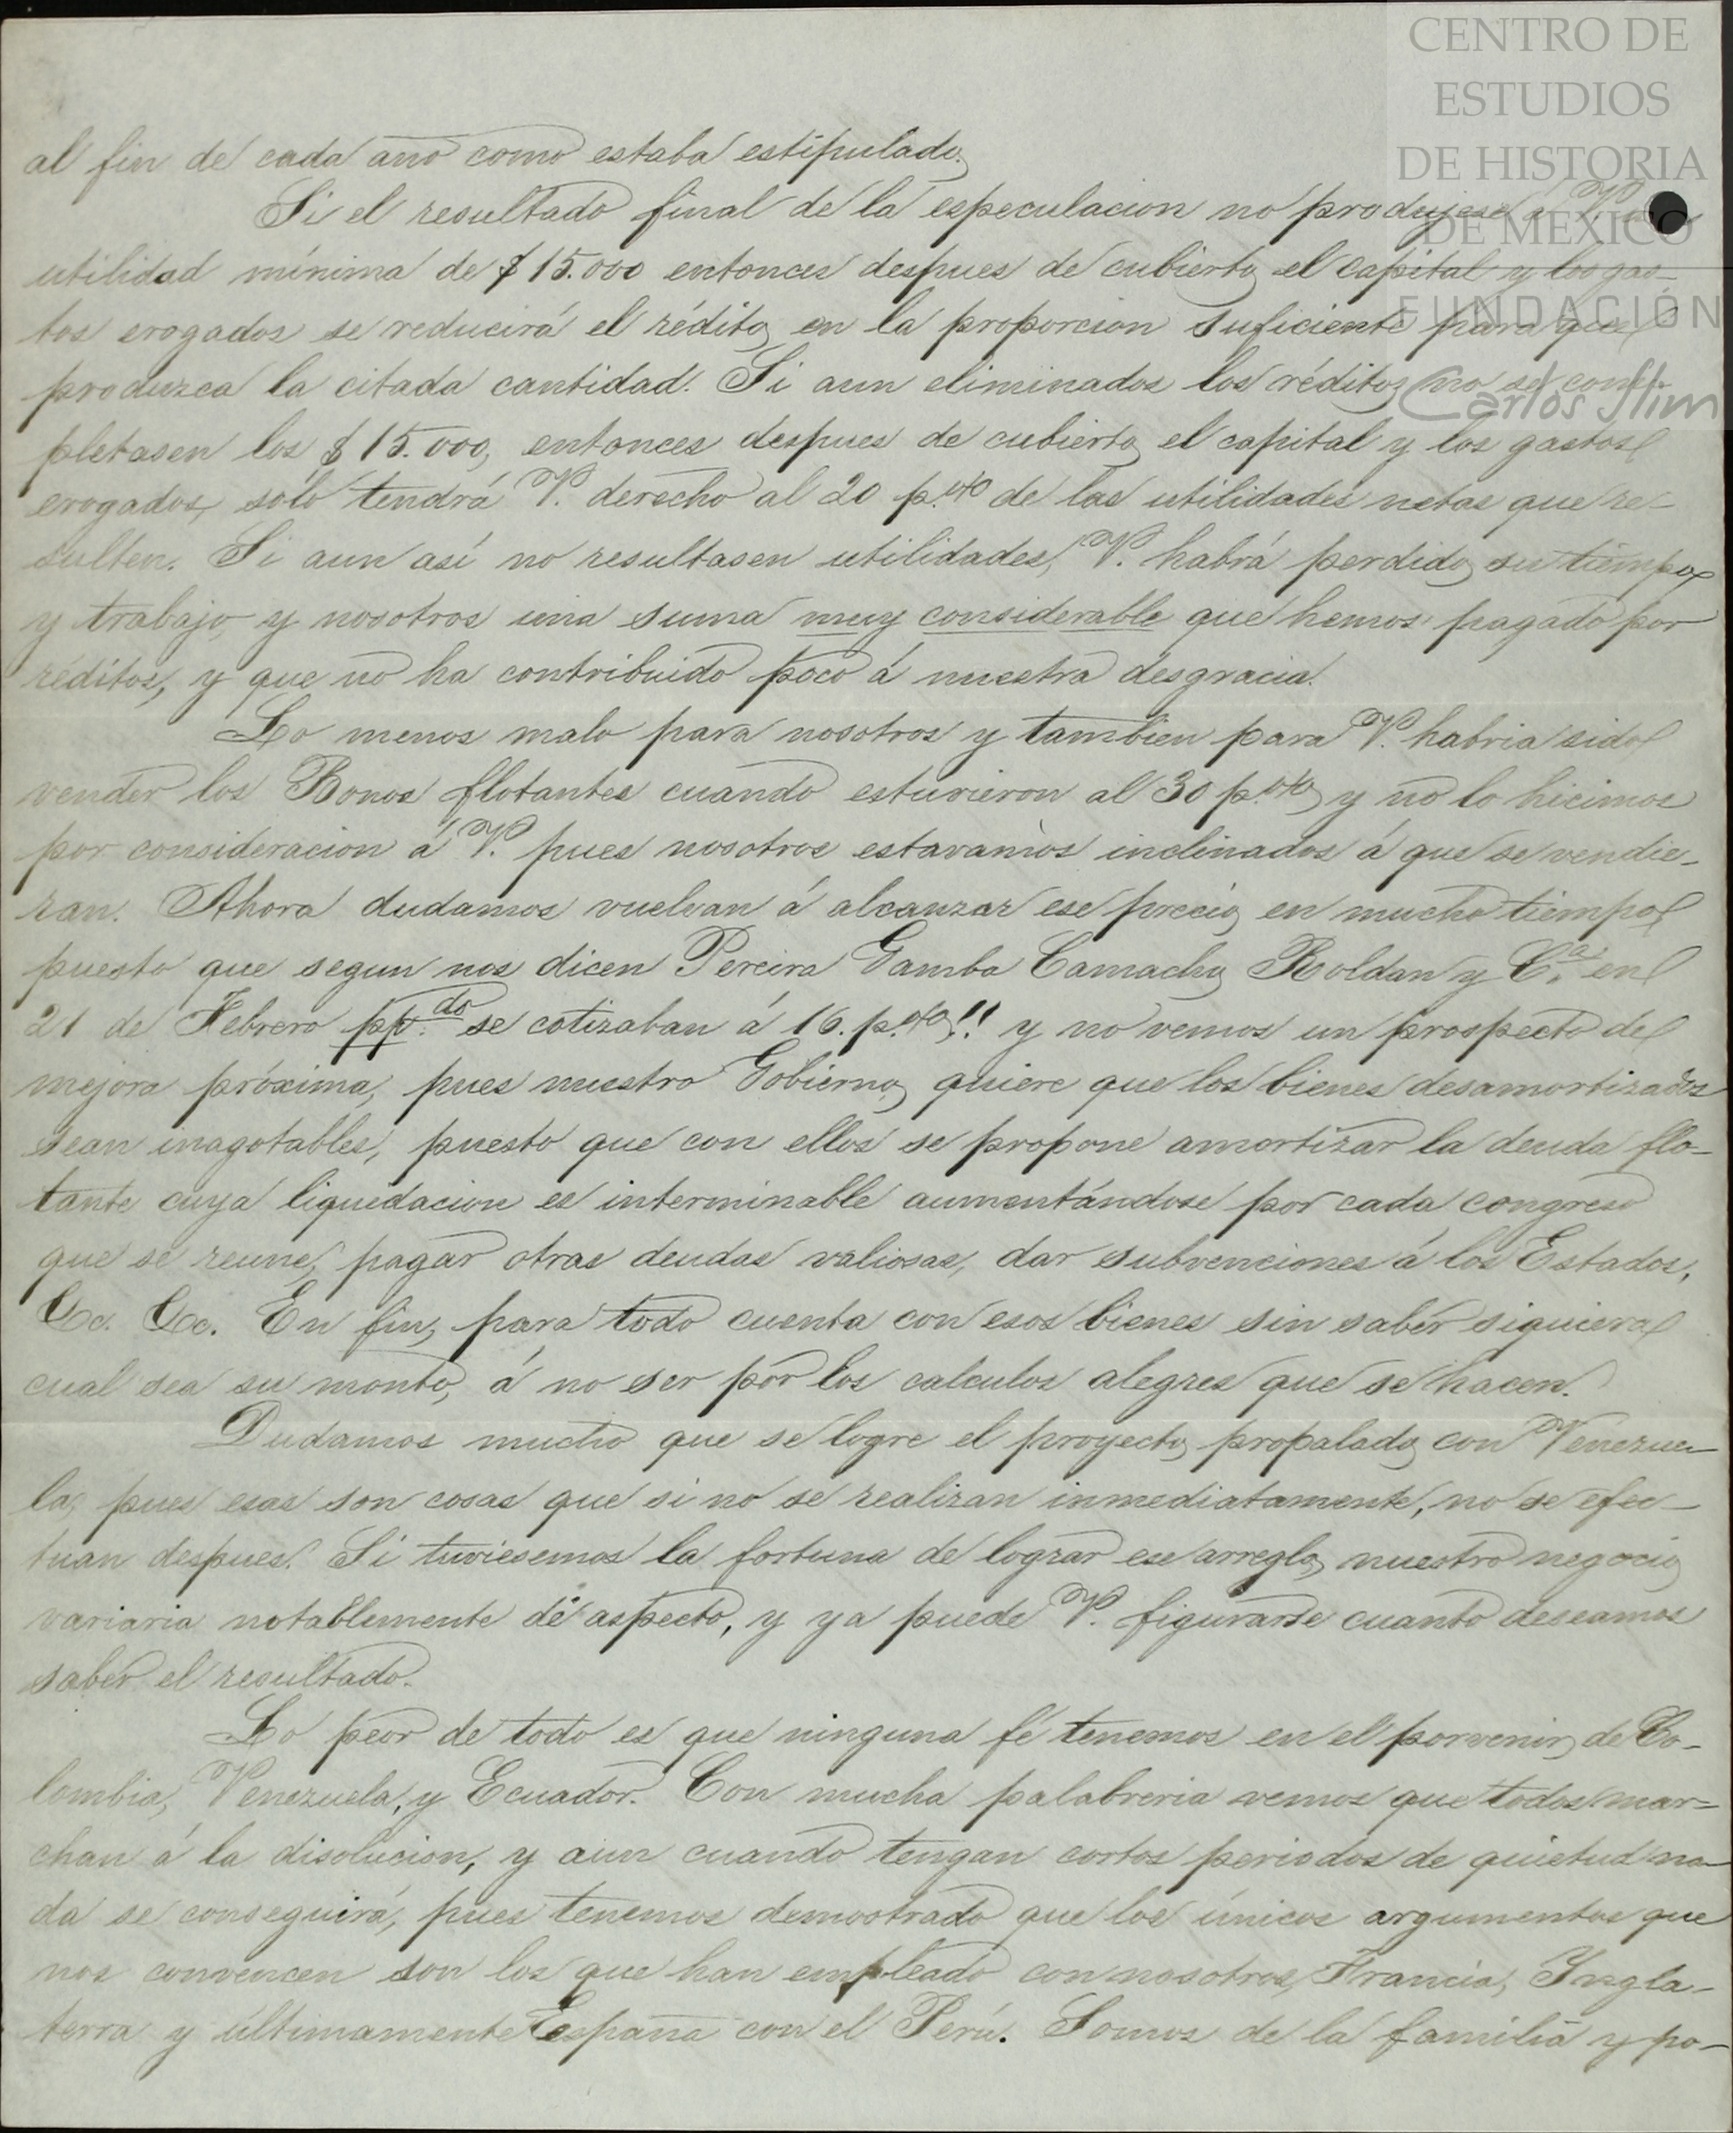 CENTRO DE
ESTUDIOS
DE HISTORIA
DE MEXICO
FUNDACIÓN
Carlos Slim
al fin de cada año como estaba estipulado.
Si el resultado final de la especulacion no produjese á V. la
utilidad mínima de $15.000 entonces despues de cubierto el capital y los gas-
tos erogados se reducirá el rédito en la proporcion suficiente para que
produzca la citada cantidad. Si aun eliminados los réditos no se com-
pletasen los $15.000, entonces despues de cubierto el capital y los gastos
erogados, solo tendrá V. derecho al 20 p.% de las utilidades netas que re-
sulten. Si aun así no resultasen utilidades, V. habrá perdido su tiempo
y trabajo, y nosotros una suma muy considerable que hemos pagado por
réditos, y que no ha contribuido poco á nuestra desgracia.
Lo menos malo para nosotros y tambien para V. habria sido
vender los Bonos flotantes cuando estuvieron al 30 p.% y no lo hicimos
por consideracion á V. pues nosotros estavamos inclinados á que se vendie-
ran. Ahora dudamos vuelvan á alcanzar ese precio en mucho tiempo
puesto que segun nos dicen Pereira Gamba Camacho Roldan y C.ª en
21 de Febrero pp.do se cotizaban á 16. p.%!! y no vemos un prospecto de
mejora próxima, pues nuestro Gobierno quiere que los bienes desamortizados
sean inagotables, puesto que con ellos se propone amortizar la deuda flo-
tante cuya liquidacion es interminable aumentándose por cada congreso
que se reune, pagar otras deudas valiosas, dar subvenciones á los Estados,
&c. &c. En fin, para todo cuenta con esos bienes sin saber siquiera
cual sea su monto, á no ser por los calculos alegres que se hacen.
Dudamos mucho que se logre el proyecto propalado con Venezue-
la, pues esas son cosas que si no se realizan inmediatamente, no se efec-
tuan despues. Si tuviesemos la fortuna de lograr ese arreglo, nuestro negocio
variaria notablemente de aspecto, y ya puede V. figurarse cuanto deseamos
saber el resultado.
Lo peor de todo es que ninguna fé tenemos en el porvenir de Co-
lombia, Venezuela, y Ecuador. Con mucha palabreria vemos que todos mar-
chan á la disolucion, y aun cuando tengan cortos periodos de quietud na-
da se conseguirá, pues tenemos demostrado que los únicos argumentos que
nos convencen son los que han empleado con nosotros, Francia, Ingla-
terra y últimamente España con el Perú. Somos de la familia y po-